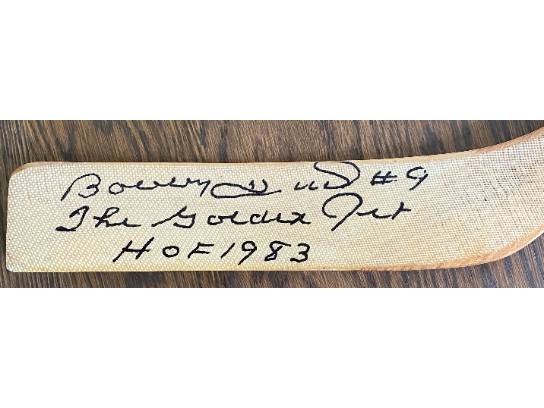 Bobby Hull #9
The Golden Jet
HOF 1983